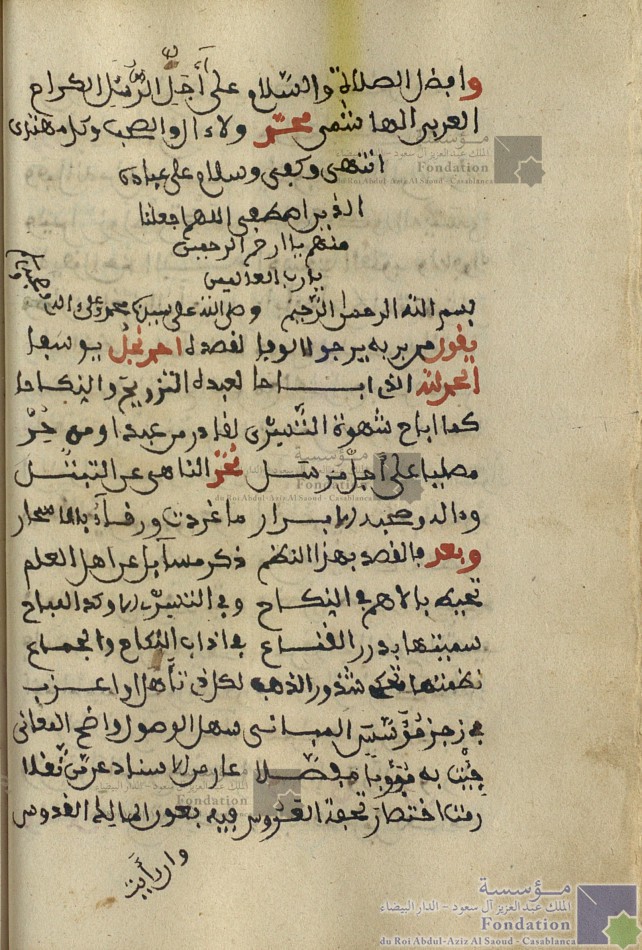 وافضل الصلاة والسلام على أجل الرسل الكرام
العربي الهاشمي محمد والآل والصحب وكل مهتدي
انتهى وكفى وسلام على عباده
الذين اصطفى اللهم اجعلنا
منهم يا ارحم الرحمين
يا رب العالمين
بسم الله الرحمن الرحيم وصلى الله على سيدنا محمد وعلى آله
يقول من بربه يرجو الوفا لقصده احمد نجل يوسفا
الحمد لله الذي اباحا لعبده التزويج والنكاحا
كما اباح شهوة التسري لقادر من عبد او من حر
مصليا على أجل مرسل محمد الناهي عن التبتل
وءاله وصحبه الابرار ما غردت ورقاء بالاسحار
وبعد فالقصد بهذا النظم ذكر مسائل عن اهل العلم
تحيط بالاهم في النكاح وفي التسري الاوكد المباح
سميتها بدرر القناع في اداب النكاح والجماع
نظمتها تحكي شذور الذهب لكل ذي تأهل او اعزب
في رجز مؤسس المباني سهل الوصول واضح المعاني
جئت به مقربا مفصلا عار من الاسناد عمن نقلا
رمت اختصار تحفة العروس فيه بعون المالك القدوس
وان أبت
مؤسسة
الملك عبد العزيز آل سعود - الدار البيضاء
Fondation
du Roi Abdul-Aziz Al Saoud - Casablanca